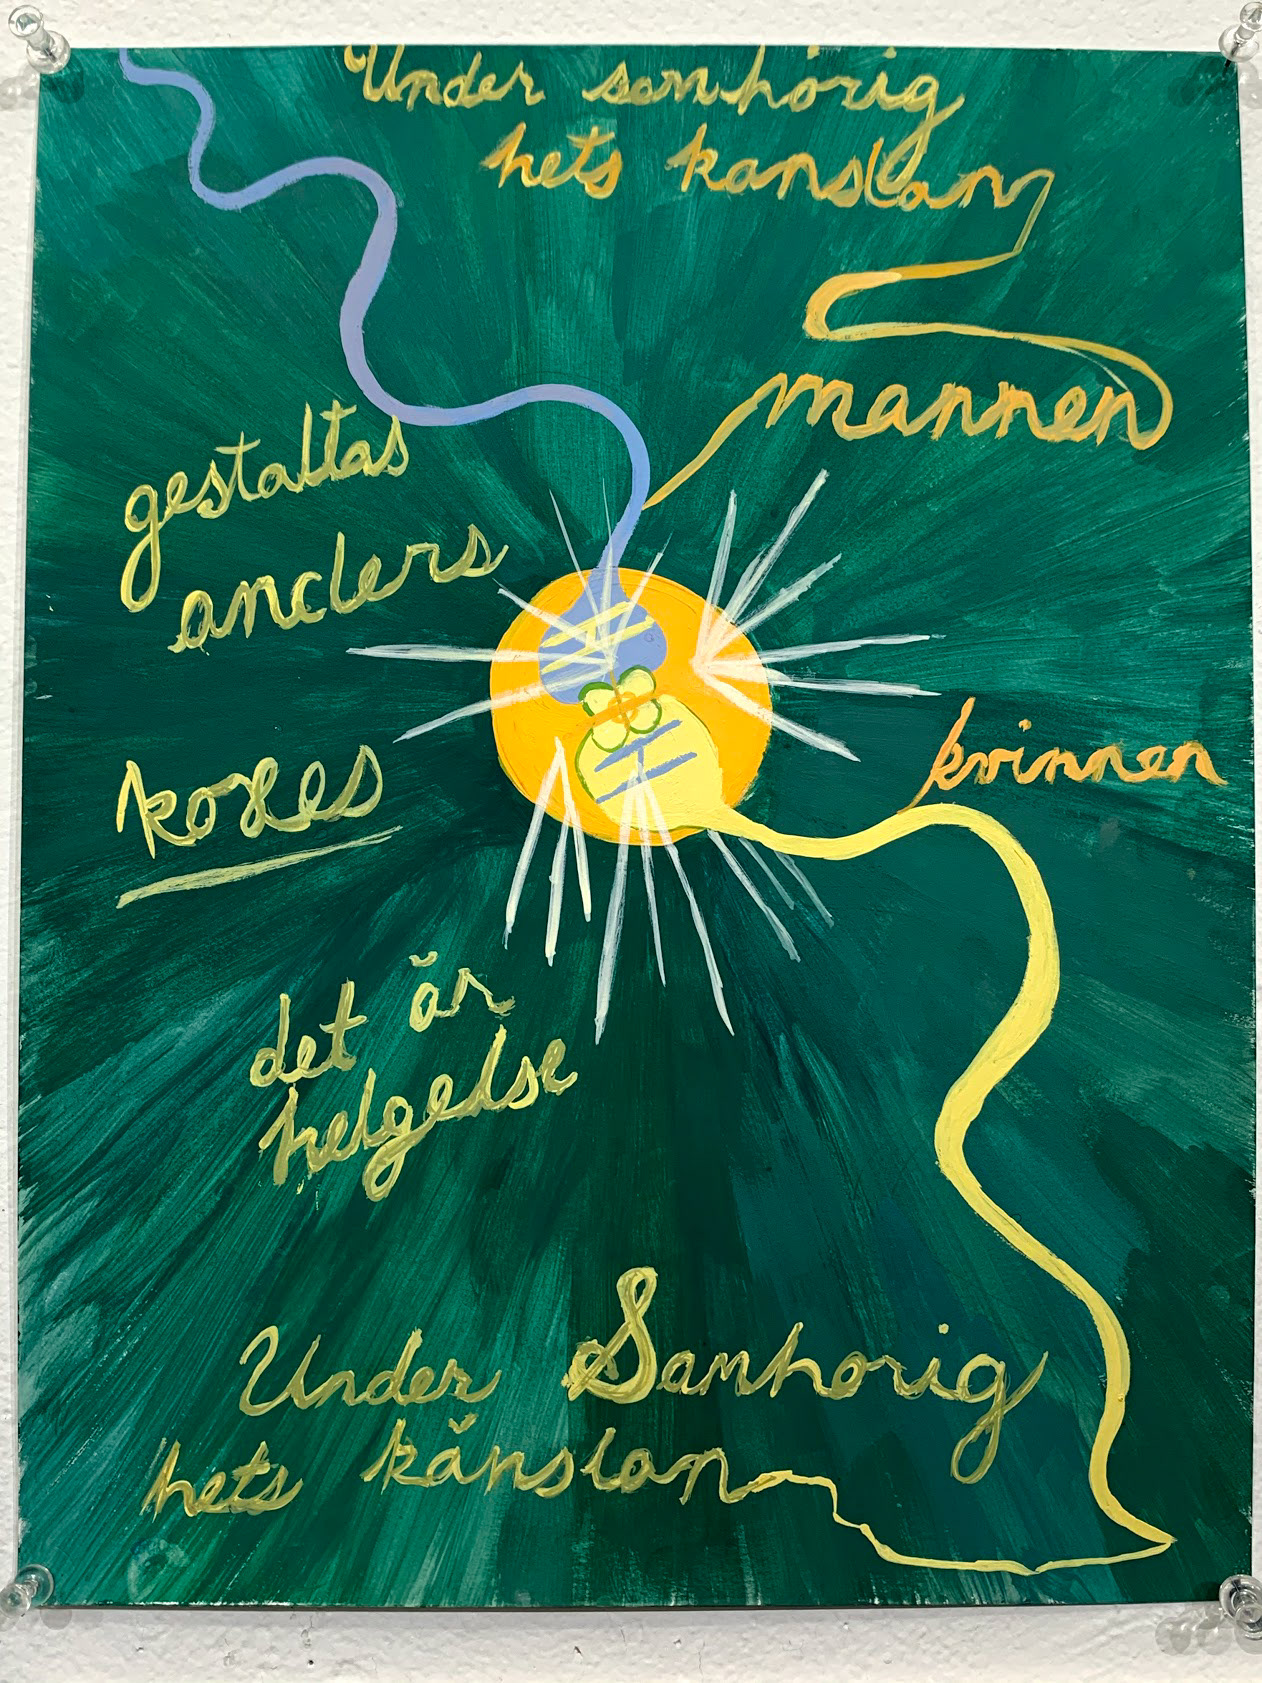 Under samhörig
hets kanslan
mannen
gestaltas
anders
kvinnen
koxes
det är
helgelse
Under Samhorig
hets känslan